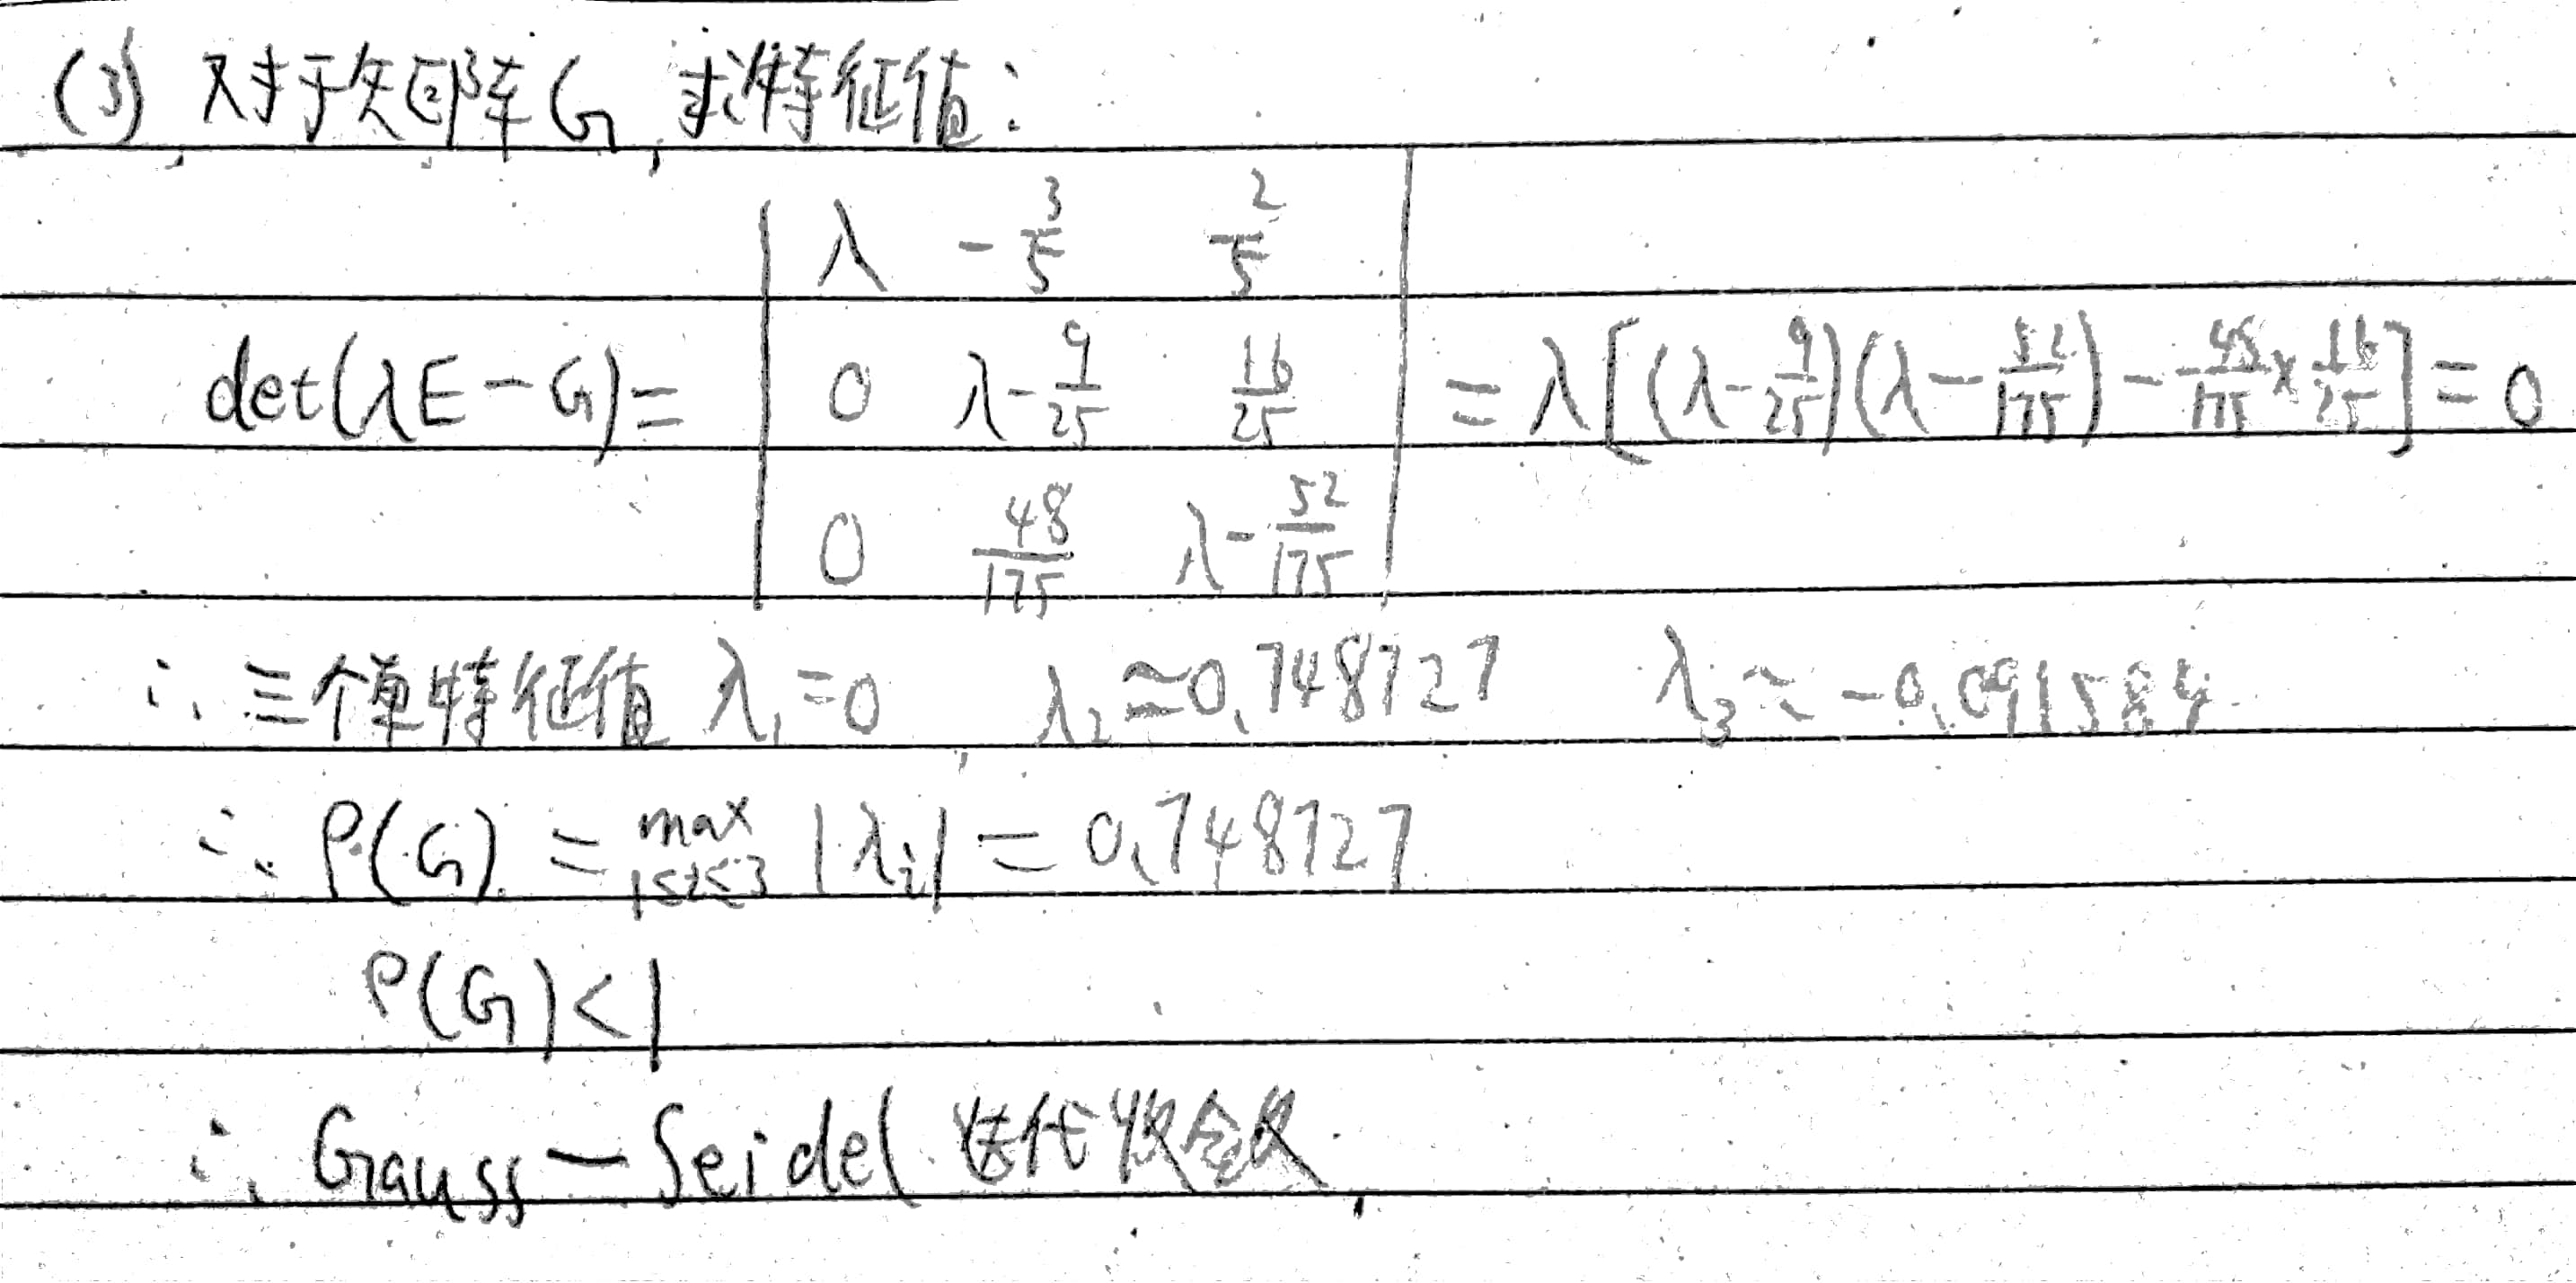 (3) 对于矩阵G,求特征值:
det(λE-G)= | λ -3/5 2/5 ; 0 λ-9/25 16/25 ; 0 48/175 λ-52/175 | =λ[(λ-9/25)(λ-52/175)-48/175×16/25]=0
∴ 三个单特征值 λ₁=0, λ₂≈0.748727 λ₃≈-0.091584
∴ ρ(G) = max 1≤i≤3 |λi| = 0.748727
ρ(G)<1
∴ Gauss-Seidel 迭代收敛.